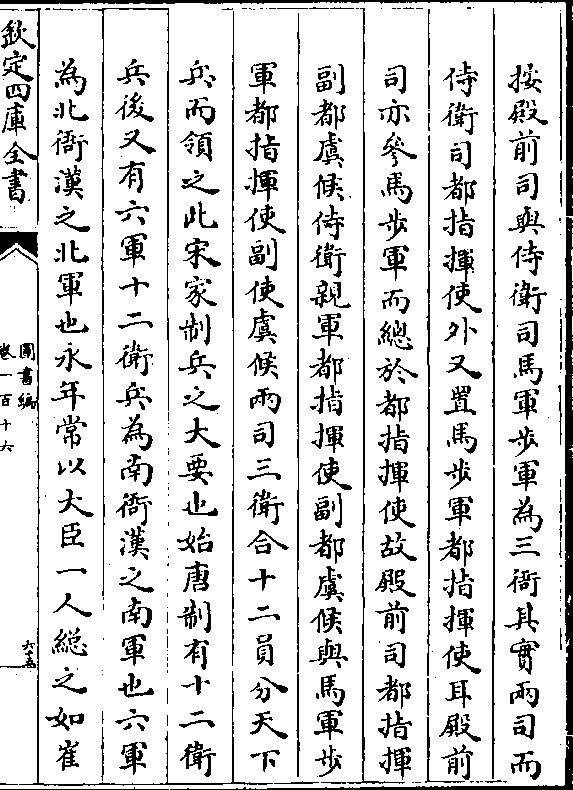 按殿前司與侍衛司馬軍步軍為三衙其實兩司而
侍衛司都指揮使外又置馬步軍都指揮使耳殿前
司亦參馬步軍而總於都指揮使故殿前司都指揮
副都虞候侍衛親軍都指揮使副都虞候與馬軍步
軍都指揮使副使虞候兩司三衛合十二員分天下
兵而領之此宋家制兵之大要也始唐制有十二衛
兵後又有六軍十二衛兵為南衙漢之南軍也六軍
為北衙漢之北軍也永年常以大臣一人總之如崔
欽定四庫全書
圖書編
卷一百十六
六十五